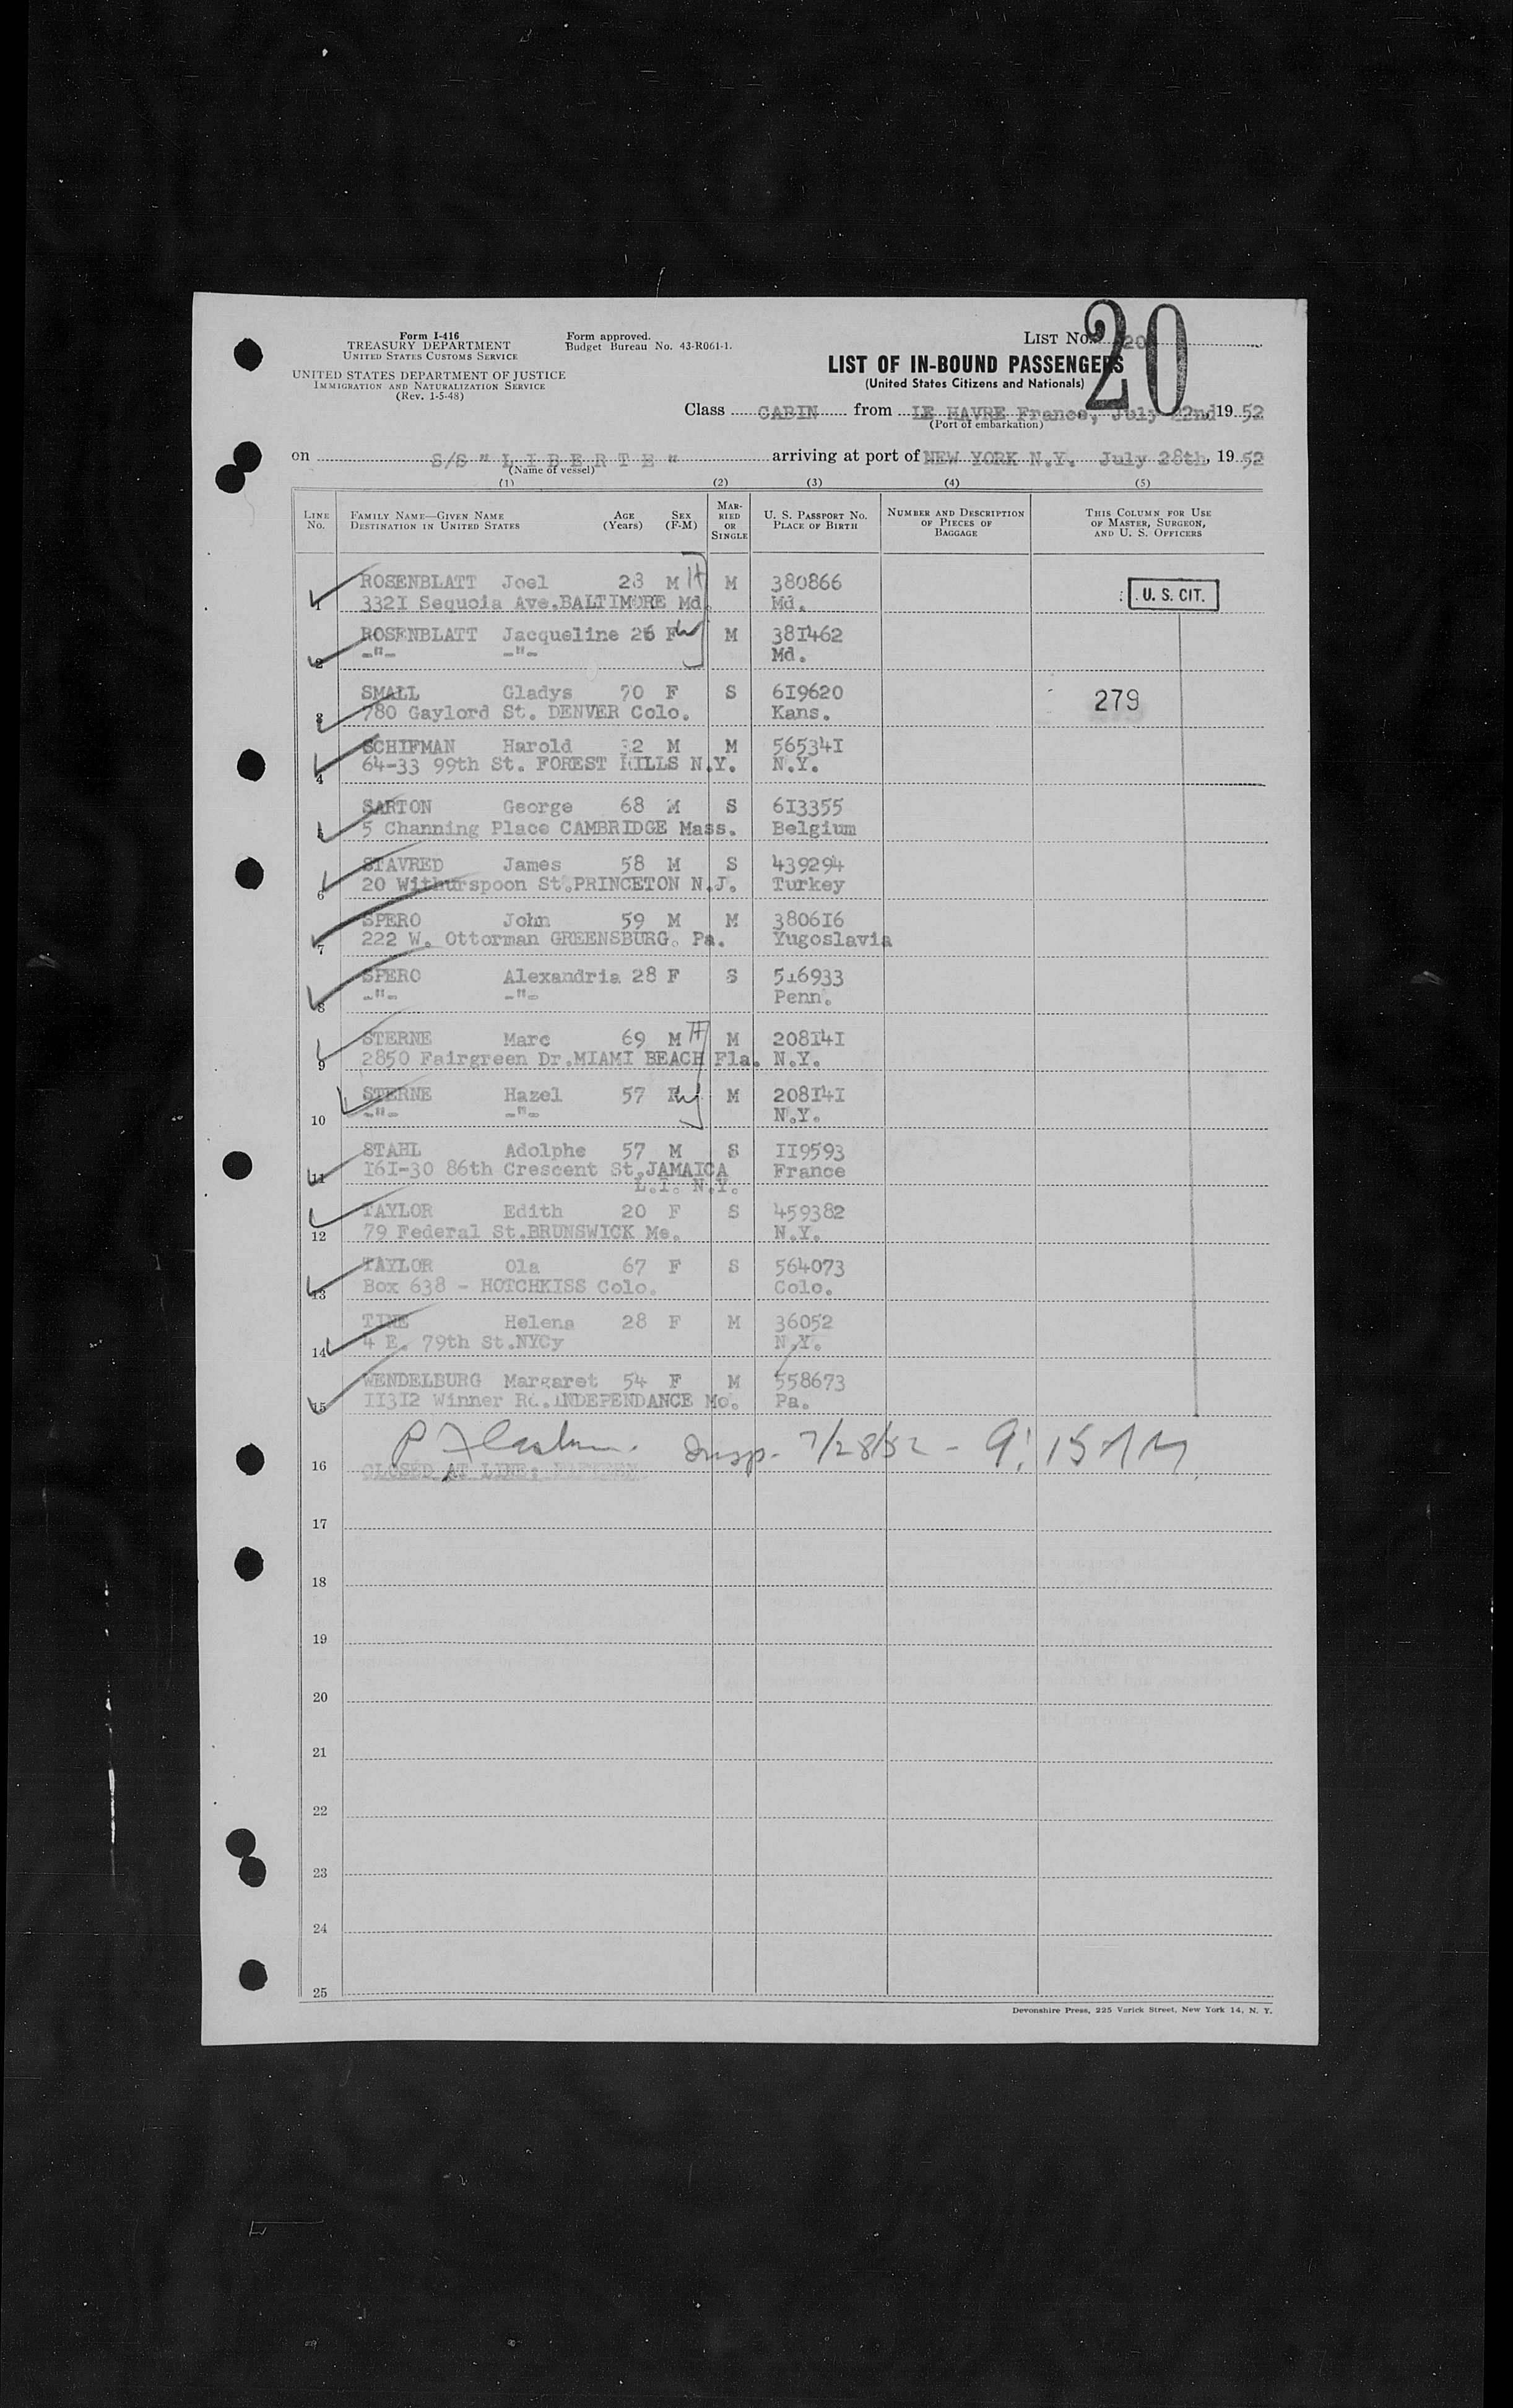 Form I-416
TREASURY DEPARTMENT
UNITED STATES CUSTOMS SERVICE
UNITED STATES DEPARTMENT OF JUSTICE
IMMIGRATION AND NATURALIZATION SERVICE
(Rev. 1-5-48)
Form approved.
Budget Bureau No. 43-R061-1.
LIST No. 20
20
LIST OF IN-BOUND PASSENGERS
(United States Citizens and Nationals)
Class CABIN from LE HAVRE France, July 22nd 19 52
(Port of embarkation)
on S/S " L I B E R T E " arriving at port of NEW YORK N.Y. July 28th, 19 52
(Name of vessel)
(1) (2) (3) (4) (5)
LINE No. FAMILY NAME—GIVEN NAME DESTINATION IN UNITED STATES AGE (Years) SEX (F-M) MARRIED OR SINGLE U. S. PASSPORT No. PLACE OF BIRTH NUMBER AND DESCRIPTION OF PIECES OF BAGGAGE THIS COLUMN FOR USE OF MASTER, SURGEON, AND U. S. OFFICERS
ROSENBLATT Joel 28 M H M 380866
1 332I Sequoia Ave.BALTIMORE Md. Md. U. S. CIT.
ROSENBLATT Jacqueline 26 F W M 38I462
2 -"- -"- Md.
SMALL Gladys 70 F S 6I9620 279
3 780 Gaylord St. DENVER Colo. Kans.
SCHIFMAN Harold 32 M M 56534I
4 64-33 99th St. FOREST HILLS N.Y. N.Y.
SARTON George 68 M S 6I3355
5 5 Channing Place CAMBRIDGE Mass. Belgium
STAVRED James 58 M S 439294
6 20 Withurspoon St.PRINCETON N.J. Turkey
SPERO John 59 M M 3806I6
7 222 W. Ottorman GREENSBURG. Pa. Yugoslavia
SPERO Alexandria 28 F S 516933
8 -"- -"- Penn.
STERNE Marc 69 M H M 208I4I
9 2850 Fairgreen Dr.MIAMI BEACH Fla. N.Y.
STERNE Hazel 57 F W M 208I4I
10 -"- -"- N.Y.
STAHL Adolphe 57 M S II9593
11 I6I-30 86th Crescent St.JAMAICA France
L.I. N.Y.
TAYLOR Edith 20 F S 459382
12 79 Federal St.BRUNSWICK Me. N.Y.
TAYLOR Ola 67 F S 564073
13 Box 638 - HOTCHKISS Colo. Colo.
TINE Helena 28 F M 36052
14 4 E. 79th St.NYCy N.Y.
WENDELBURG Margaret 54 F M 558673
15 II3I2 Winner Rd.INDEPENDANCE Mo. Pa.
Insp. 7/28/52 - 9:15 AM
16 CLOSED AT LINE: FIFTEEN
17
18
19
20
21
22
23
24
25
Devonshire Press, 225 Varick Street, New York 14, N. Y.